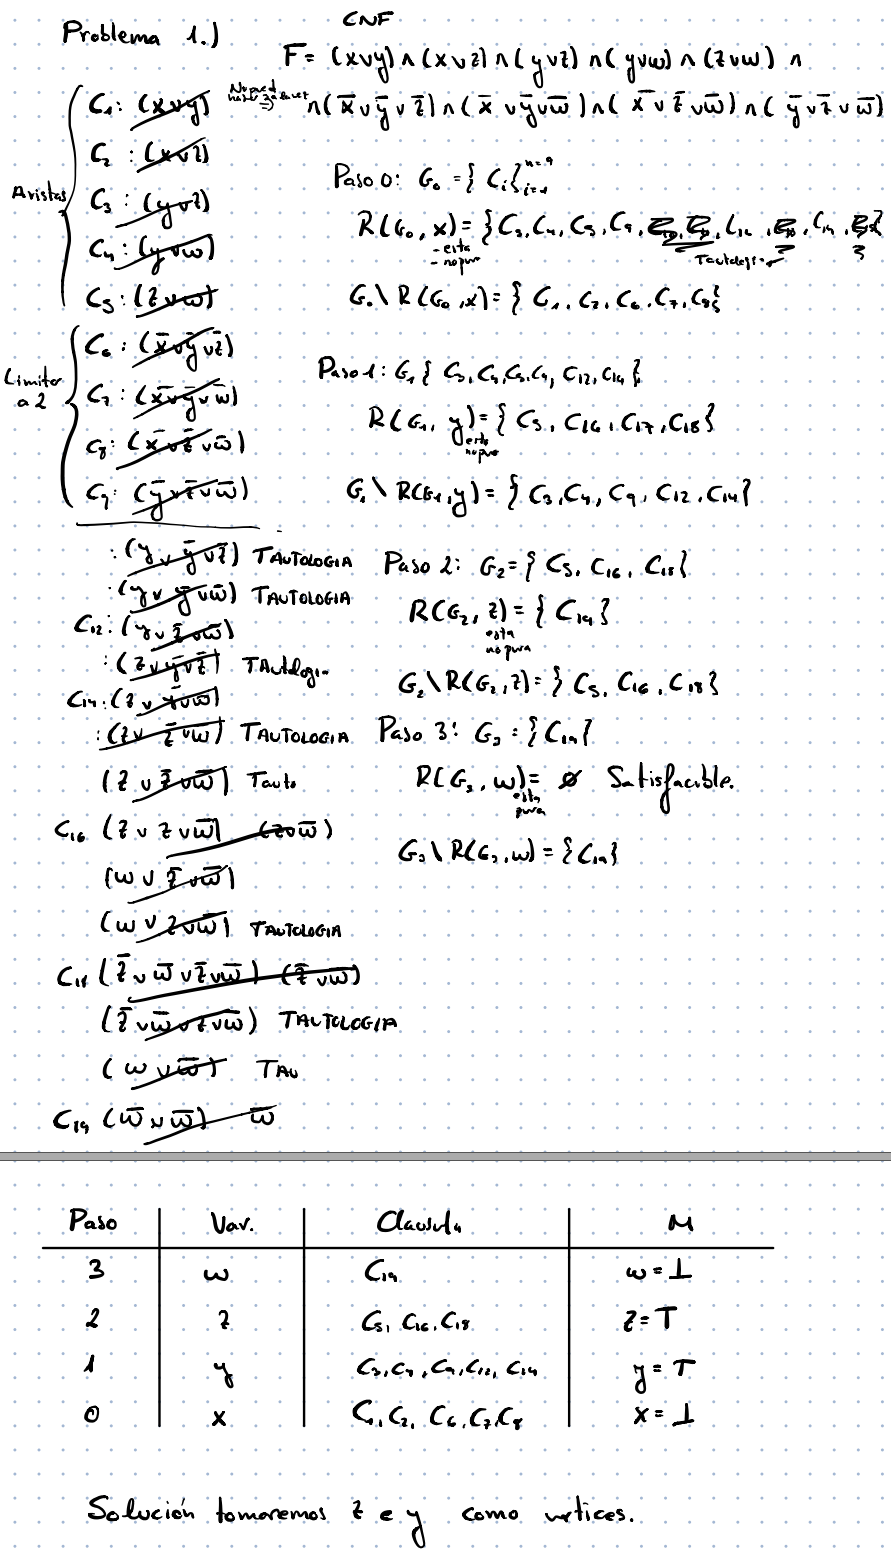 Problema 1.)
CNF
F = (x∨y) ∧ (x∨z) ∧ (y∨z) ∧ (y∨w) ∧ (z∨w) ∧
∧(x̄∨ȳ∨z̄) ∧ (x̄∨ȳ∨w̄) ∧ (x̄∨z̄∨w̄) ∧ (ȳ∨z̄∨w̄)
Aristas
C₁: (x∨y)
C₂: (x∨z)
C₃: (y∨z)
C₄: (y∨w)
C₅: (z∨w)
Limitar a 2
C₆: (x̄∨ȳ∨z̄)
C₇: (x̄∨ȳ∨w̄)
C₈: (x̄∨z̄∨w̄)
C₉: (ȳ∨z̄∨w̄)
: (y∨ȳ∨z̄) TAUTOLOGIA
: (y∨ȳ∨w̄) TAUTOLOGIA
C₁₂: (y∨z̄∨w̄)
: (z∨ȳ∨z̄) TAutologi
C₁₄: (z∨ȳ∨w̄)
: (z∨z̄∨w̄) TAUTOLOGIA
(z∨z̄∨w̄) Tauto
C₁₆ (z∨z∨w̄) (z∨w̄)
(w∨z̄∨w̄)
(w∨z∨w̄) TAUTOLOGIA
C₁₈ (z̄∨w̄∨z̄∨w̄) (z̄∨w̄)
(z̄∨w̄∨z∨w̄) TAUTOLOGIA
(w∨w̄) TAU
C₁₉ (w̄∨w̄) w̄
Paso 0: G₀ = { Cᵢ}ᵢ₌₁ⁿ⁼⁹
R(G₀, x) = {C₃, C₄, C₅, C₉, C₁₂, C₁₄}
- esta
- no pura
Tautologia
G₀\R(G₀,x) = { C₁, C₂, C₆, C₇, C₈}
Paso 1: G₁{ C₃, C₄, C₅, C₉, C₁₂, C₁₄}
R(G₁, y) = { C₅, C₁₆, C₁₇, C₁₈}
esta
no pura
G₁\R(G₁,y) = { C₃, C₄, C₉, C₁₂, C₁₄}
Paso 2: G₂ = { C₅, C₁₆, C₁₈}
R(G₂, z) = { C₁₉}
esta
no pura
G₂\R(G₂,z) = { C₅, C₁₆, C₁₈}
Paso 3: G₃ = {C₁₉}
R(G₃, w) = ∅ Satisfacible.
esta
pura
G₃\R(G₃,w) = {C₁₉}
Paso Var. Clausula M
3 w C₁₉ w = ⊥
2 z C₅, C₁₆, C₁₈ z = T
1 y C₃, C₄, C₉, C₁₂, C₁₄ y = T
0 x C₁, C₂, C₆, C₇, C₈ x = ⊥
Solución tomaremos z e y como vertices.